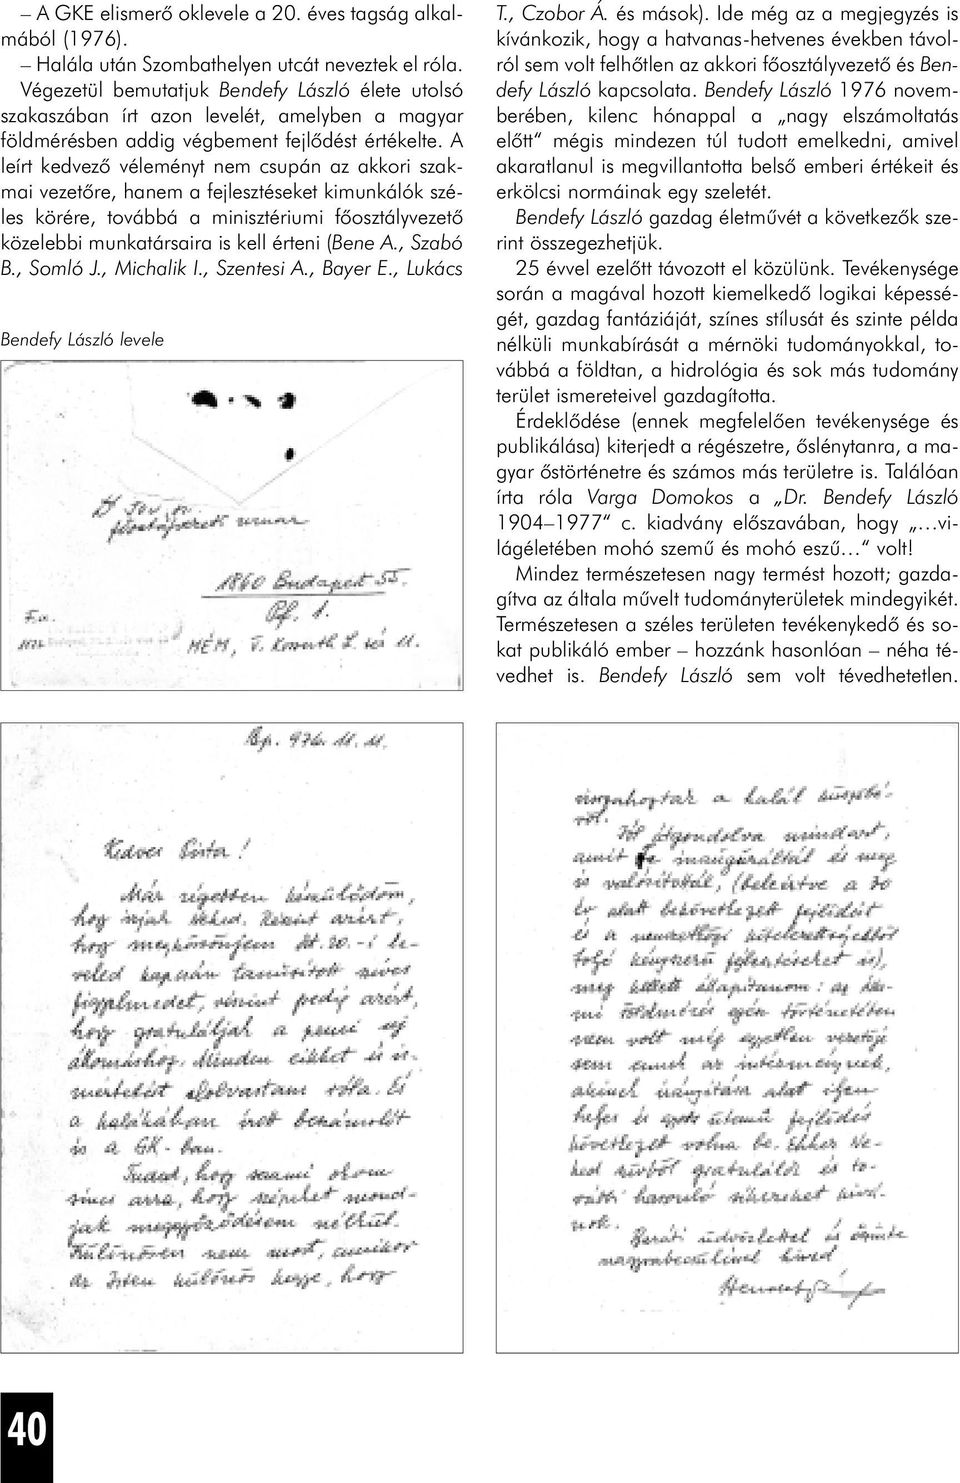 – A GKE elismerő oklevele a 20. éves tagság alkal-
mából (1976).
– Halála után Szombathelyen utcát neveztek el róla.
Végezetül bemutatjuk Bendefy László élete utolsó
szakaszában írt azon levelét, amelyben a magyar
földmérésben addig végbement fejlődést értékelte. A
leírt kedvező véleményt nem csupán az akkori szak-
mai vezetőre, hanem a fejlesztéseket kimunkálók szé-
les körére, továbbá a minisztériumi főosztályvezető
közelebbi munkatársaira is kell érteni (Bene A., Szabó
B., Somló J., Michalik I., Szentesi A., Bayer E., Lukács
T., Czobor Á. és mások). Ide még az a megjegyzés is
kívánkozik, hogy a hatvanas-hetvenes években távol-
ról sem volt felhőtlen az akkori főosztályvezető és Ben-
defy László kapcsolata. Bendefy László 1976 novem-
berében, kilenc hónappal a „nagy elszámoltatás
előtt“ mégis mindezen túl tudott emelkedni, amivel
akaratlanul is megvillantotta belső emberi értékeit és
erkölcsi normáinak egy szeletét.
Bendefy László gazdag életművét a következők sze-
rint összegezhetjük.
25 évvel ezelőtt távozott el közülünk. Tevékenysége
során a magával hozott kiemelkedő logikai képessé-
gét, gazdag fantáziáját, színes stílusát és szinte példa
nélküli munkabírását a mérnöki tudományokkal, to-
vábbá a földtan, a hidrológia és sok más tudomány
terület ismereteivel gazdagította.
Érdeklődése (ennek megfelelően tevékenysége és
publikálása) kiterjedt a régészetre, őslénytanra, a ma-
gyar őstörténetre és számos más területre is. Találóan
írta róla Varga Domokos a „Dr. Bendefy László
1904–1977“ c. kiadvány előszavában, hogy „…vi-
lágéletében mohó szemű és mohó eszű…“ volt!
Mindez természetesen nagy termést hozott; gazda-
gítva az általa művelt tudományterületek mindegyikét.
Természetesen a széles területen tevékenykedő és so-
kat publikáló ember – hozzánk hasonlóan – néha té-
vedhet is. Bendefy László sem volt tévedhetetlen.
Bendefy László levele
főosztályvezető urnak
1860 Budapest 55.
Pf. 1.
MÉM, V. Kossuth L. tér 11.
F.a.
Bp. 976. 11. 11.
Kedves Pista!
Már régebben készülődöm,
hogy írjak Neked. Részint azért,
hogy megköszönjem 20.-i le-
veled kapcsán tanúsított szíves
figyelmedet, részint pedig azért,
hogy gratuláljak a penci új
állomáshoz. Minden cikket és is-
mertetést elolvastam róla. És
a halálában írott beszámolót
is a GK-ban.
Tudod, hogy semmi okom
sincs arra, hogy szépeket mond-
jak meggyőződésem nélkül.
Különösen nem most, amikor
az Isten különös kegye, hogy
visszahoztak a halál küszöbé-
ről.
Jól átgondolva mindazt,
amit Te inauguráltál és meg
is valósítottál, (beleértve a 30
év alatt bekövetkezett fejlődést
és a nemzetközi kötelezettségekből
folyó kényszerű fejlesztéseket is),
meg kellett állapítanom: az
földmérés egész történetében
nem volt még egyetlen vezetője
sem ennek az intézménynek,
akinek irányítása alatt ilyen
helyes és gyors ütemű fejlődés
következett volna be. Ehhez Ne-
ked szívből gratulálok és to-
vábbi hasonló sikereket kívá-
nok.
Baráti üdvözlettel és őszinte
nagyrabecsüléssel híved
Bendefy
40